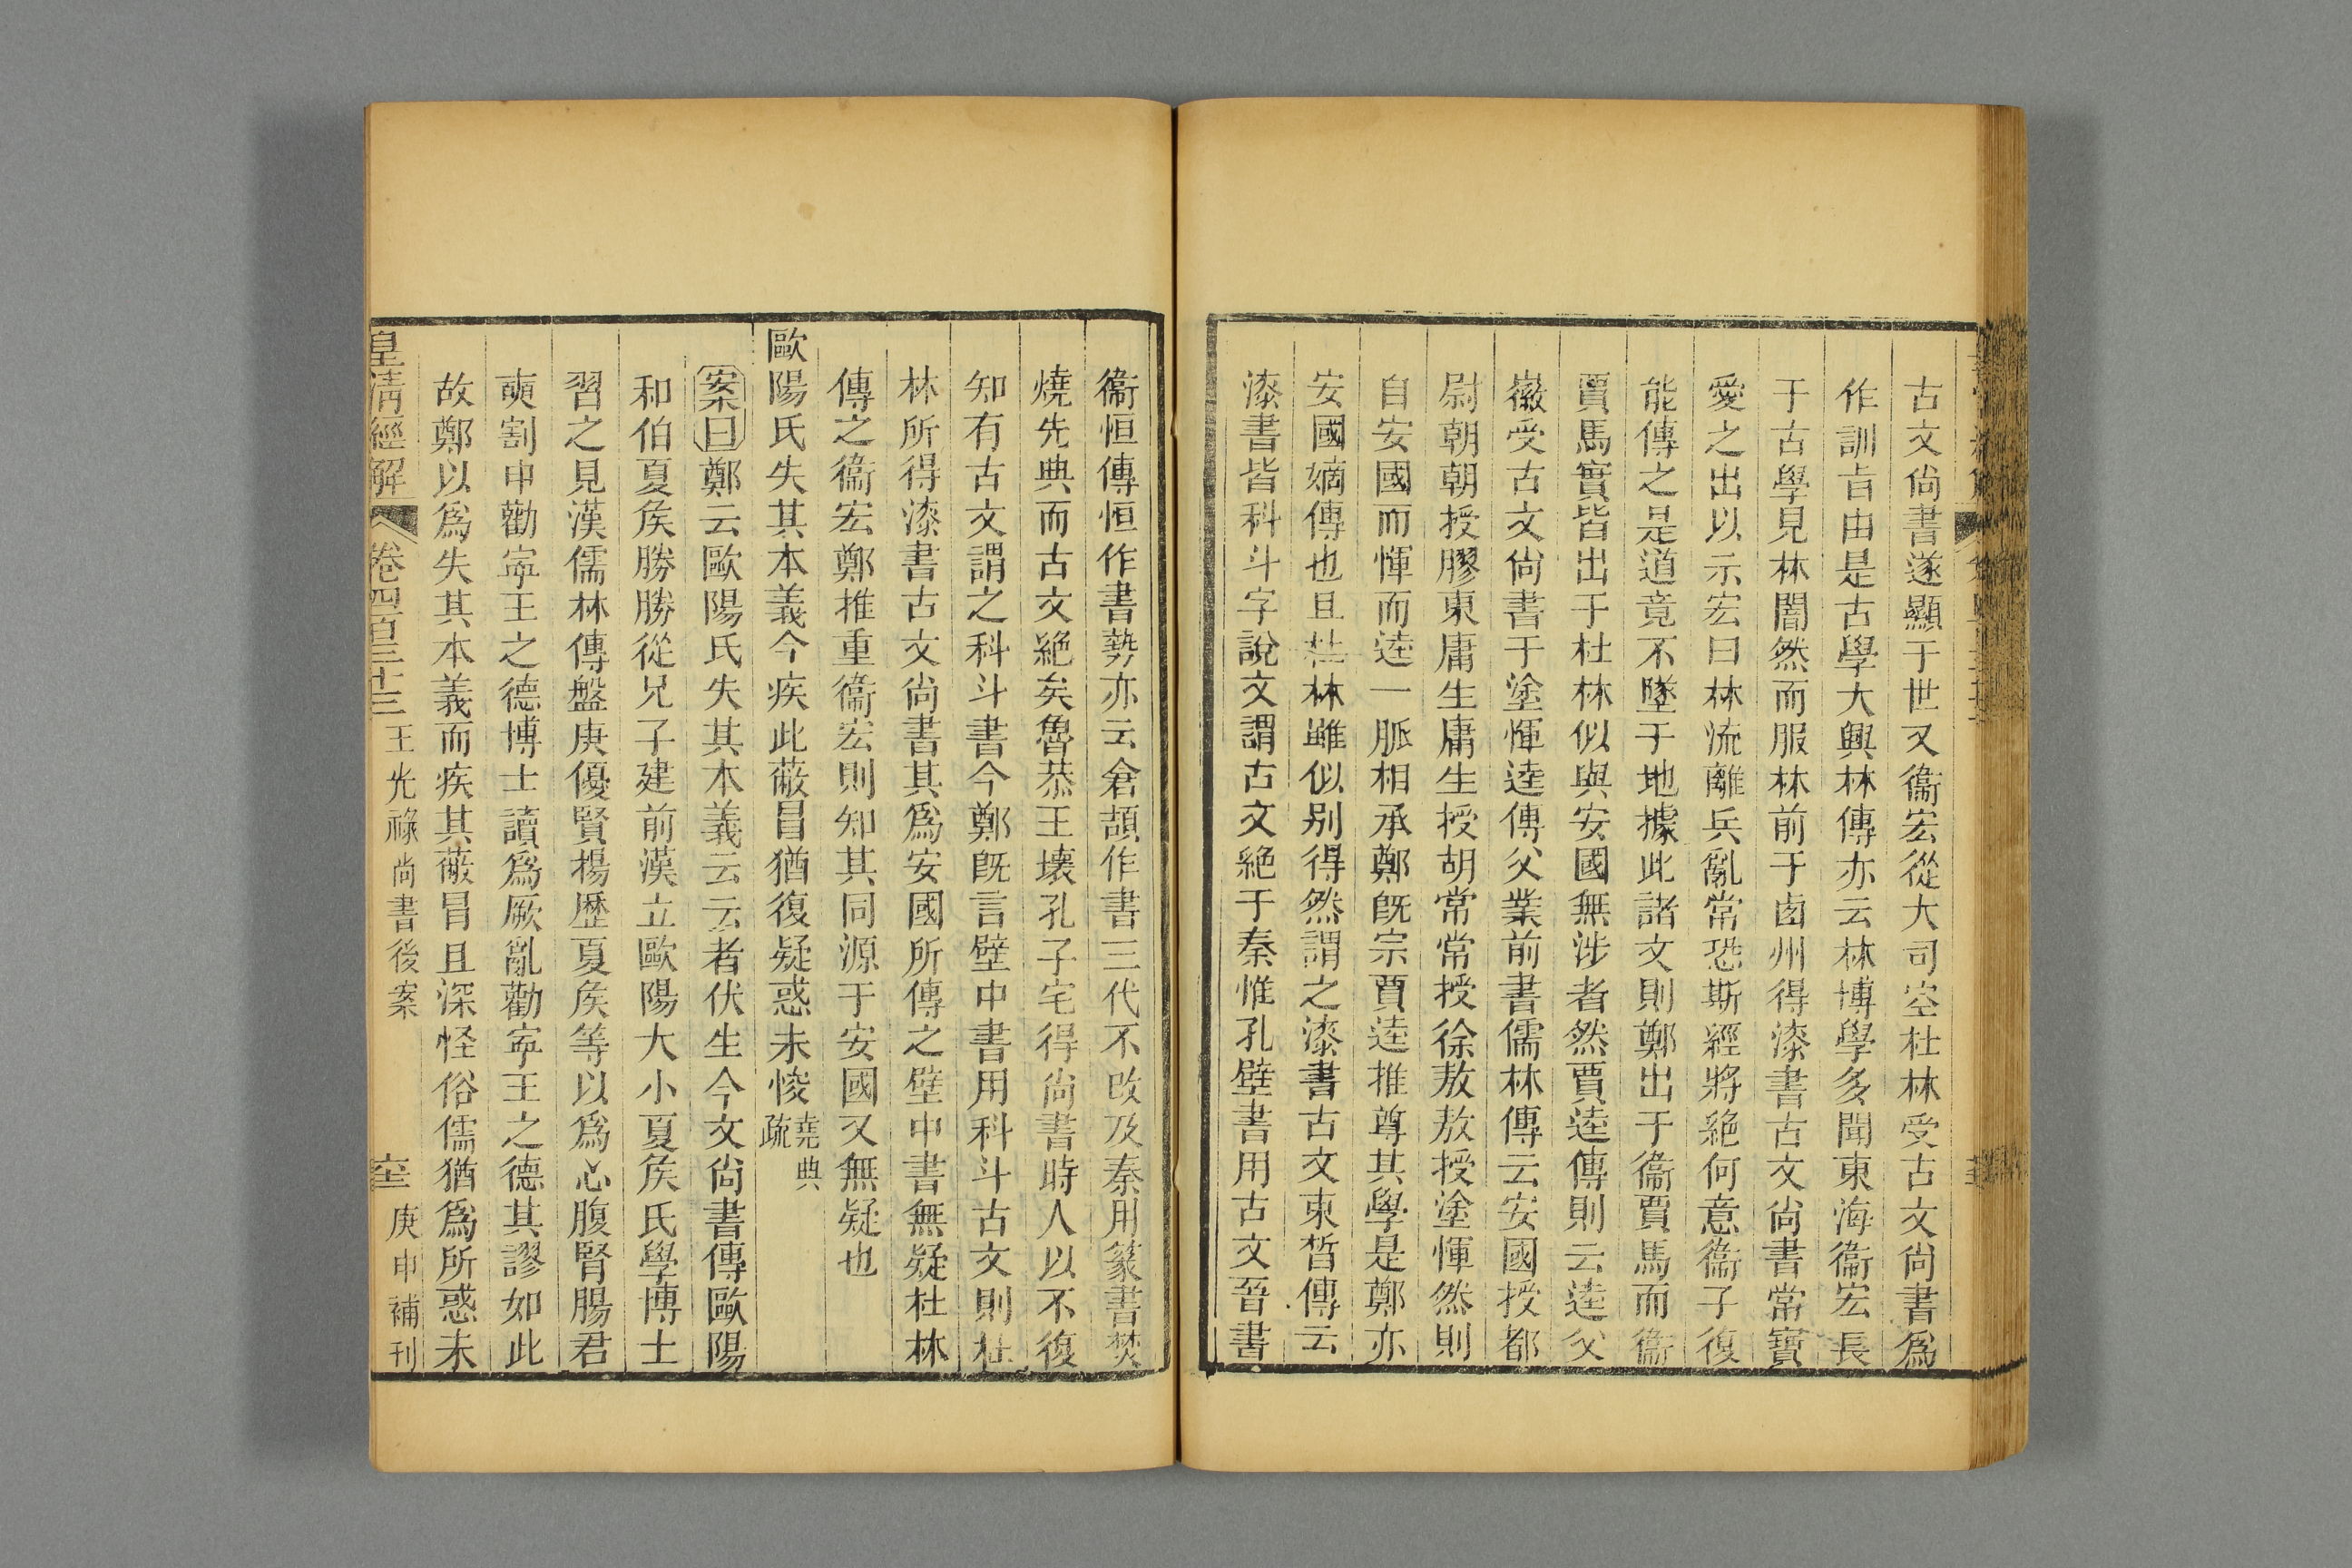 古文尙書遂顯于世又衞宏從大司空杜林受古文尙書爲
作訓旨由是古學大興林傳亦云林博學多聞東海衞宏長
于古學見林闇然而服林前于卤州得漆書古文尙書常寶
愛之出以示宏曰林流離兵亂常恐斯經將絕何意衞子復
能傳之是道竟不墜于地據此諸文則鄭出于衞賈馬而衞
賈馬實皆出于杜林似與安國無涉者然賈逵傳則云逵父
徽受古文尙書于塗惲逵傳父業前書儒林傳云安國授都
尉朝朝授膠東庸生庸生授胡常常授徐敖敖授塗惲然則
自安國而惲而逵一脈相承鄭旣宗賈逵推尊其學是鄭亦
安國嫡傳也且杜林雖似别得然謂之漆書古文東晳傳云
漆書皆科斗字說文謂古文絕于秦惟孔壁書用古文晉書
衞恒傳恒作書勢亦云倉頡作書三代不改及秦用篆書焚
燒先典而古文絕矣魯恭王壞孔子宅得尙書時人以不復
知有古文謂之科斗書今鄭旣言壁中書用科斗古文則杜
林所得漆書古文尙書其爲安國所傳之壁中書無疑杜林
傳之衞宏鄭推重衞宏則知其同源于安國又無疑也
歐陽氏失其本義今疾此蔽冒猶復疑惑未悛堯典疏
案曰鄭云歐陽氏失其本義云云者伏生今文尙書傳歐陽
和伯夏矦勝勝從兄子建前漢立歐陽大小夏矦氏學博士
習之見漢儒林傳盤庚優賢揚歷夏矦等以爲心腹腎腸君
奭割申勸寍王之德博士讀爲厥亂勸寍王之德其謬如此
故鄭以爲失其本義而疾其蔽冒且深怪俗儒猶爲所惑未
皇淸經解 卷四百三十三 王光祿尙書後案 庚申補刊